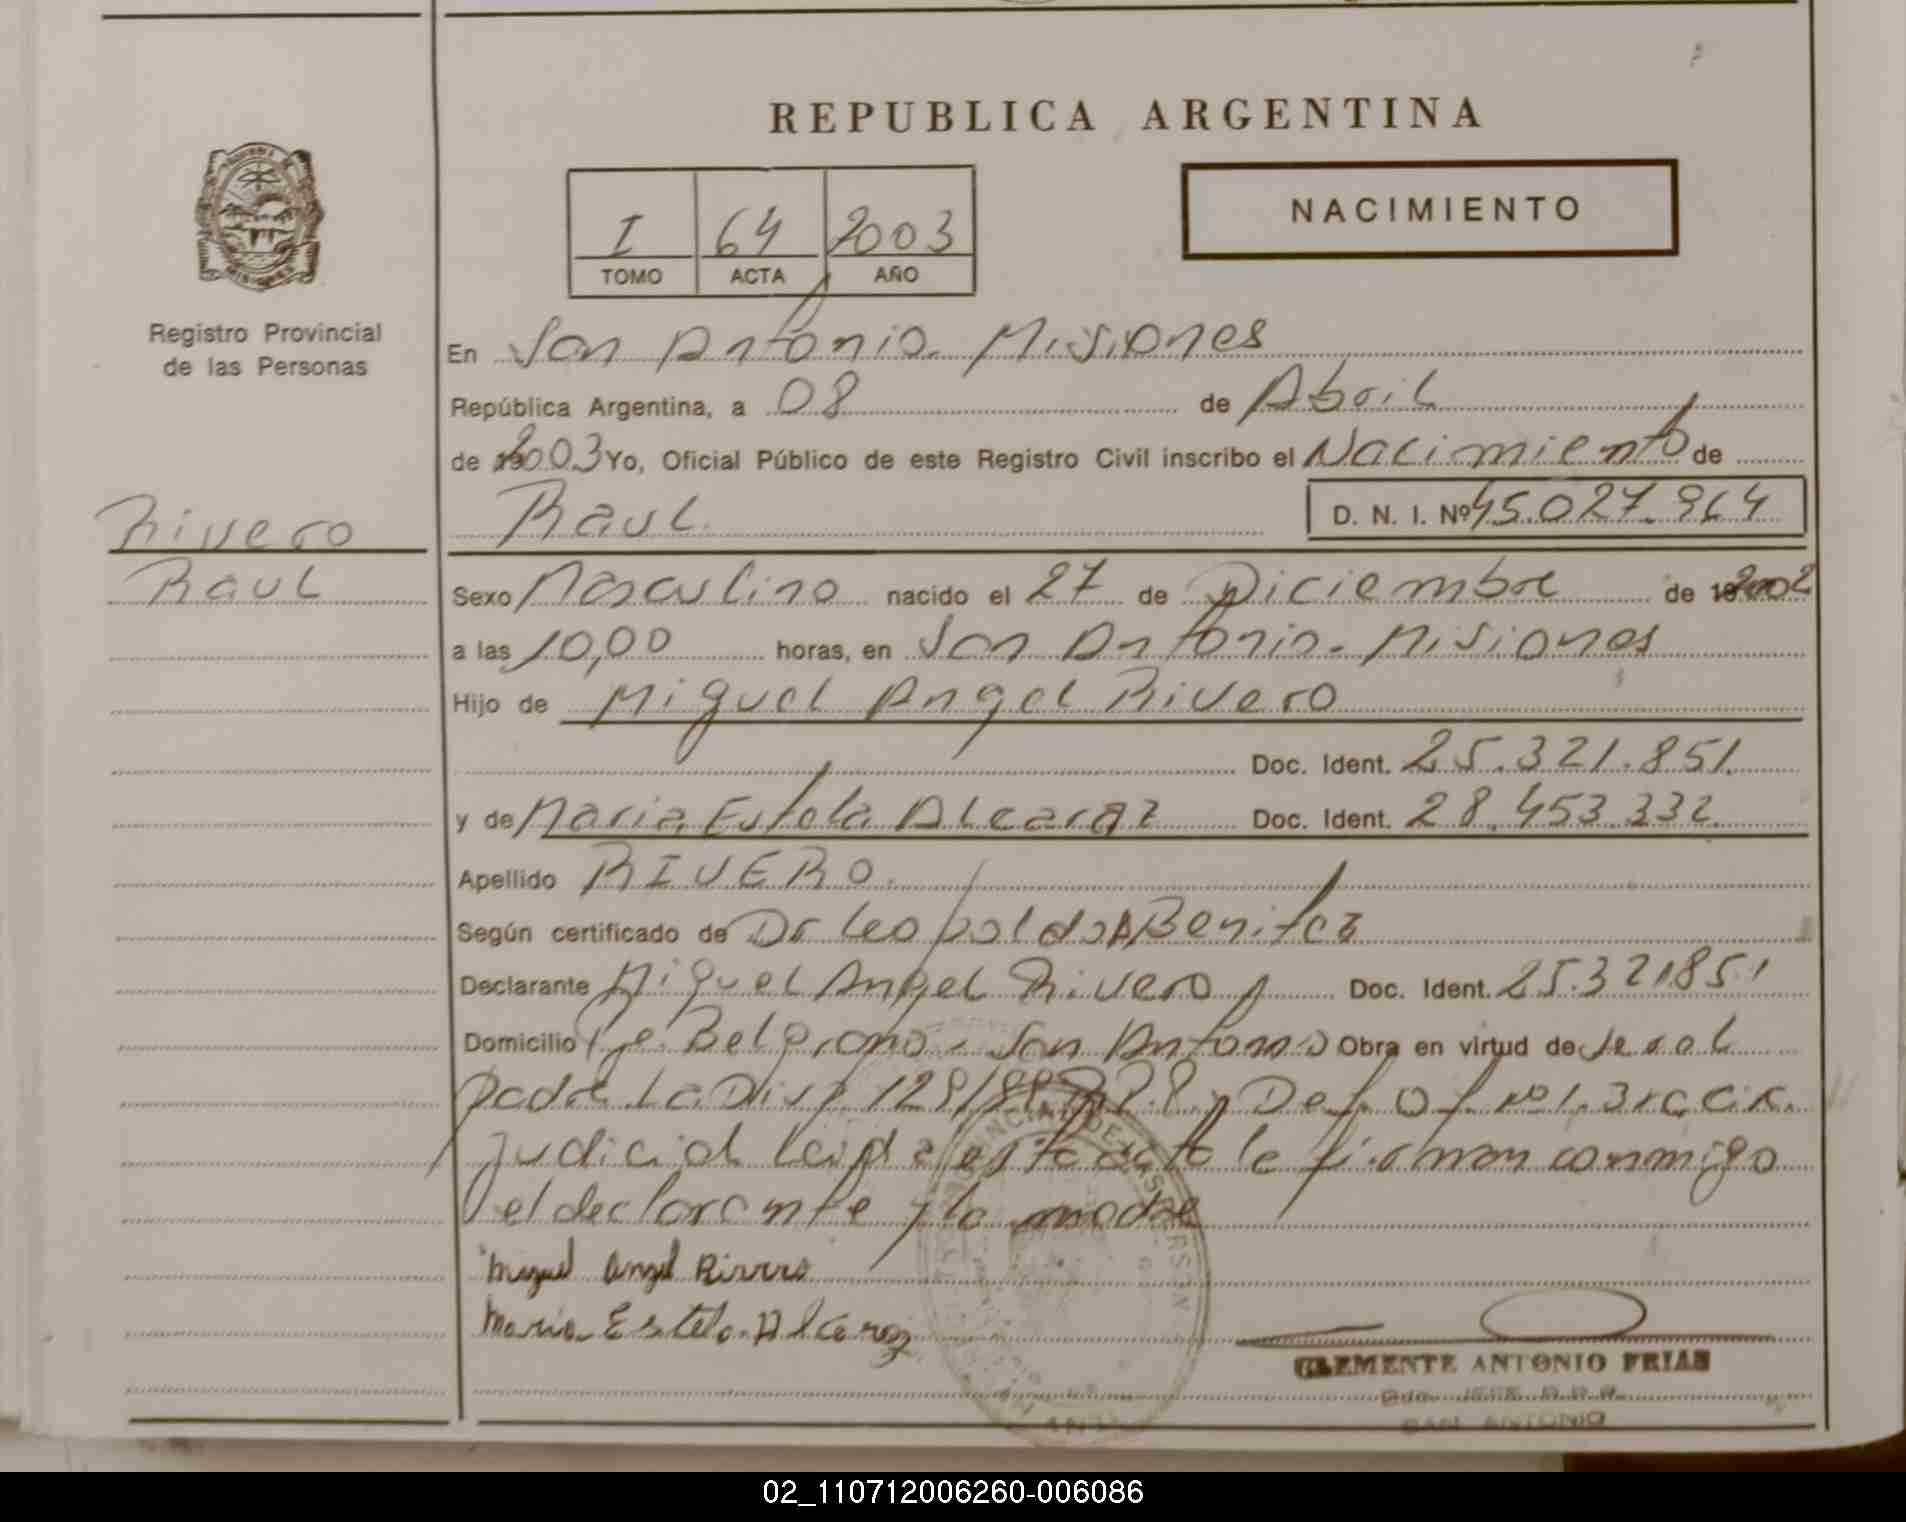 REPUBLICA ARGENTINA
NACIMIENTO
I 64 2003
TOMO ACTA AÑO
Registro Provincial
de las Personas
En San Antonio. Misiones
República Argentina, a 08 de Abril
de 2003 Yo, Oficial Público de este Registro Civil inscribo el Nacimiento de
Raul D. N. I. Nº 45.027.964
Rivero
Raul
Sexo Masculino nacido el 27 de Diciembre de 2002
a las 10,00 horas, en San Antonio. Misiones
Hijo de Miguel Angel Rivero
Doc. Ident. 25.321.851
y de Maria Estela Alcaraz Doc. Ident. 28.453.332
Apellido RIVERO
Según certificado de Dr Leopoldo A Benitez
Declarante Miguel Angel Rivero Doc. Ident. 25.321851
Domicilio Belgrano - San Antonio Obra en virtud de ser el
padre La Disp 129/88 Def. Of. Nº 1. 3ra Cir.
judicial leida esta acta le firman conmigo
el declarante y la madre
Miguel Angel Rivero
Maria Estela Alcaraz
CLEMENTE ANTONIO FRIAS
SAN ANTONIO
02_110712006260-006086